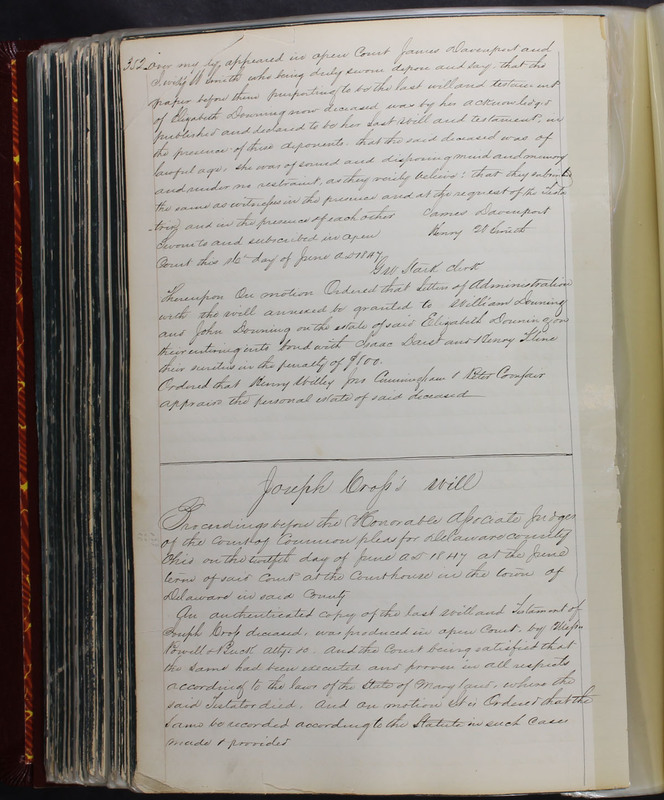 352
appeared in open Court James Davenport and
Henry W Smith who being duly sworn depose and say, that the
paper before them purporting to be the last will and testament
of Elizabeth Downing now deceased was by her acknowledged
published and declared to be her last Will and testament, in
the presence of these deponents. that the said deceased was of
lawful age, she was of sound and disposing mind and memory
and under no restraint, as they verily believe; that they subscribed
the same as witnesses in the presence and at the request of the Testa
trix, and in the presence of each other James Davenport
Sworn to and subscribed in open Henry W Smith
Court this day of June AD 1847
G W Stark Clerk
Thereupon On motion Ordered that letters of Administration
with the will annexed be granted to William Downing
and John Downing on the estate of said Elizabeth Downing on
their entering into bond with Isaac and Henry
their sureties in the penalty of $800.
Ordered that Henry Jno Cunningham & Peter
appraise the personal estate of said deceased
Joseph Cross's Will
Proceedings before the Honorable Associate Judges
of the Court of Common pleas for Delaware County
Ohio, on the twelfth day of June AD 1847 at the June
term of said Court at the Court house in the town of
Delaware in said County
An authenticated copy of the last will and Testament of
Joseph Cross deceased, was produced in open Court. by Messrs
Powell & Buck attys &c. And the Court being satisfied that
the same had been executed and proven in all respects
according to the laws of the State of Maryland, where the
said Testator died. And on motion it is Ordered that the
same be recorded according to the Statute in such case
made & provided